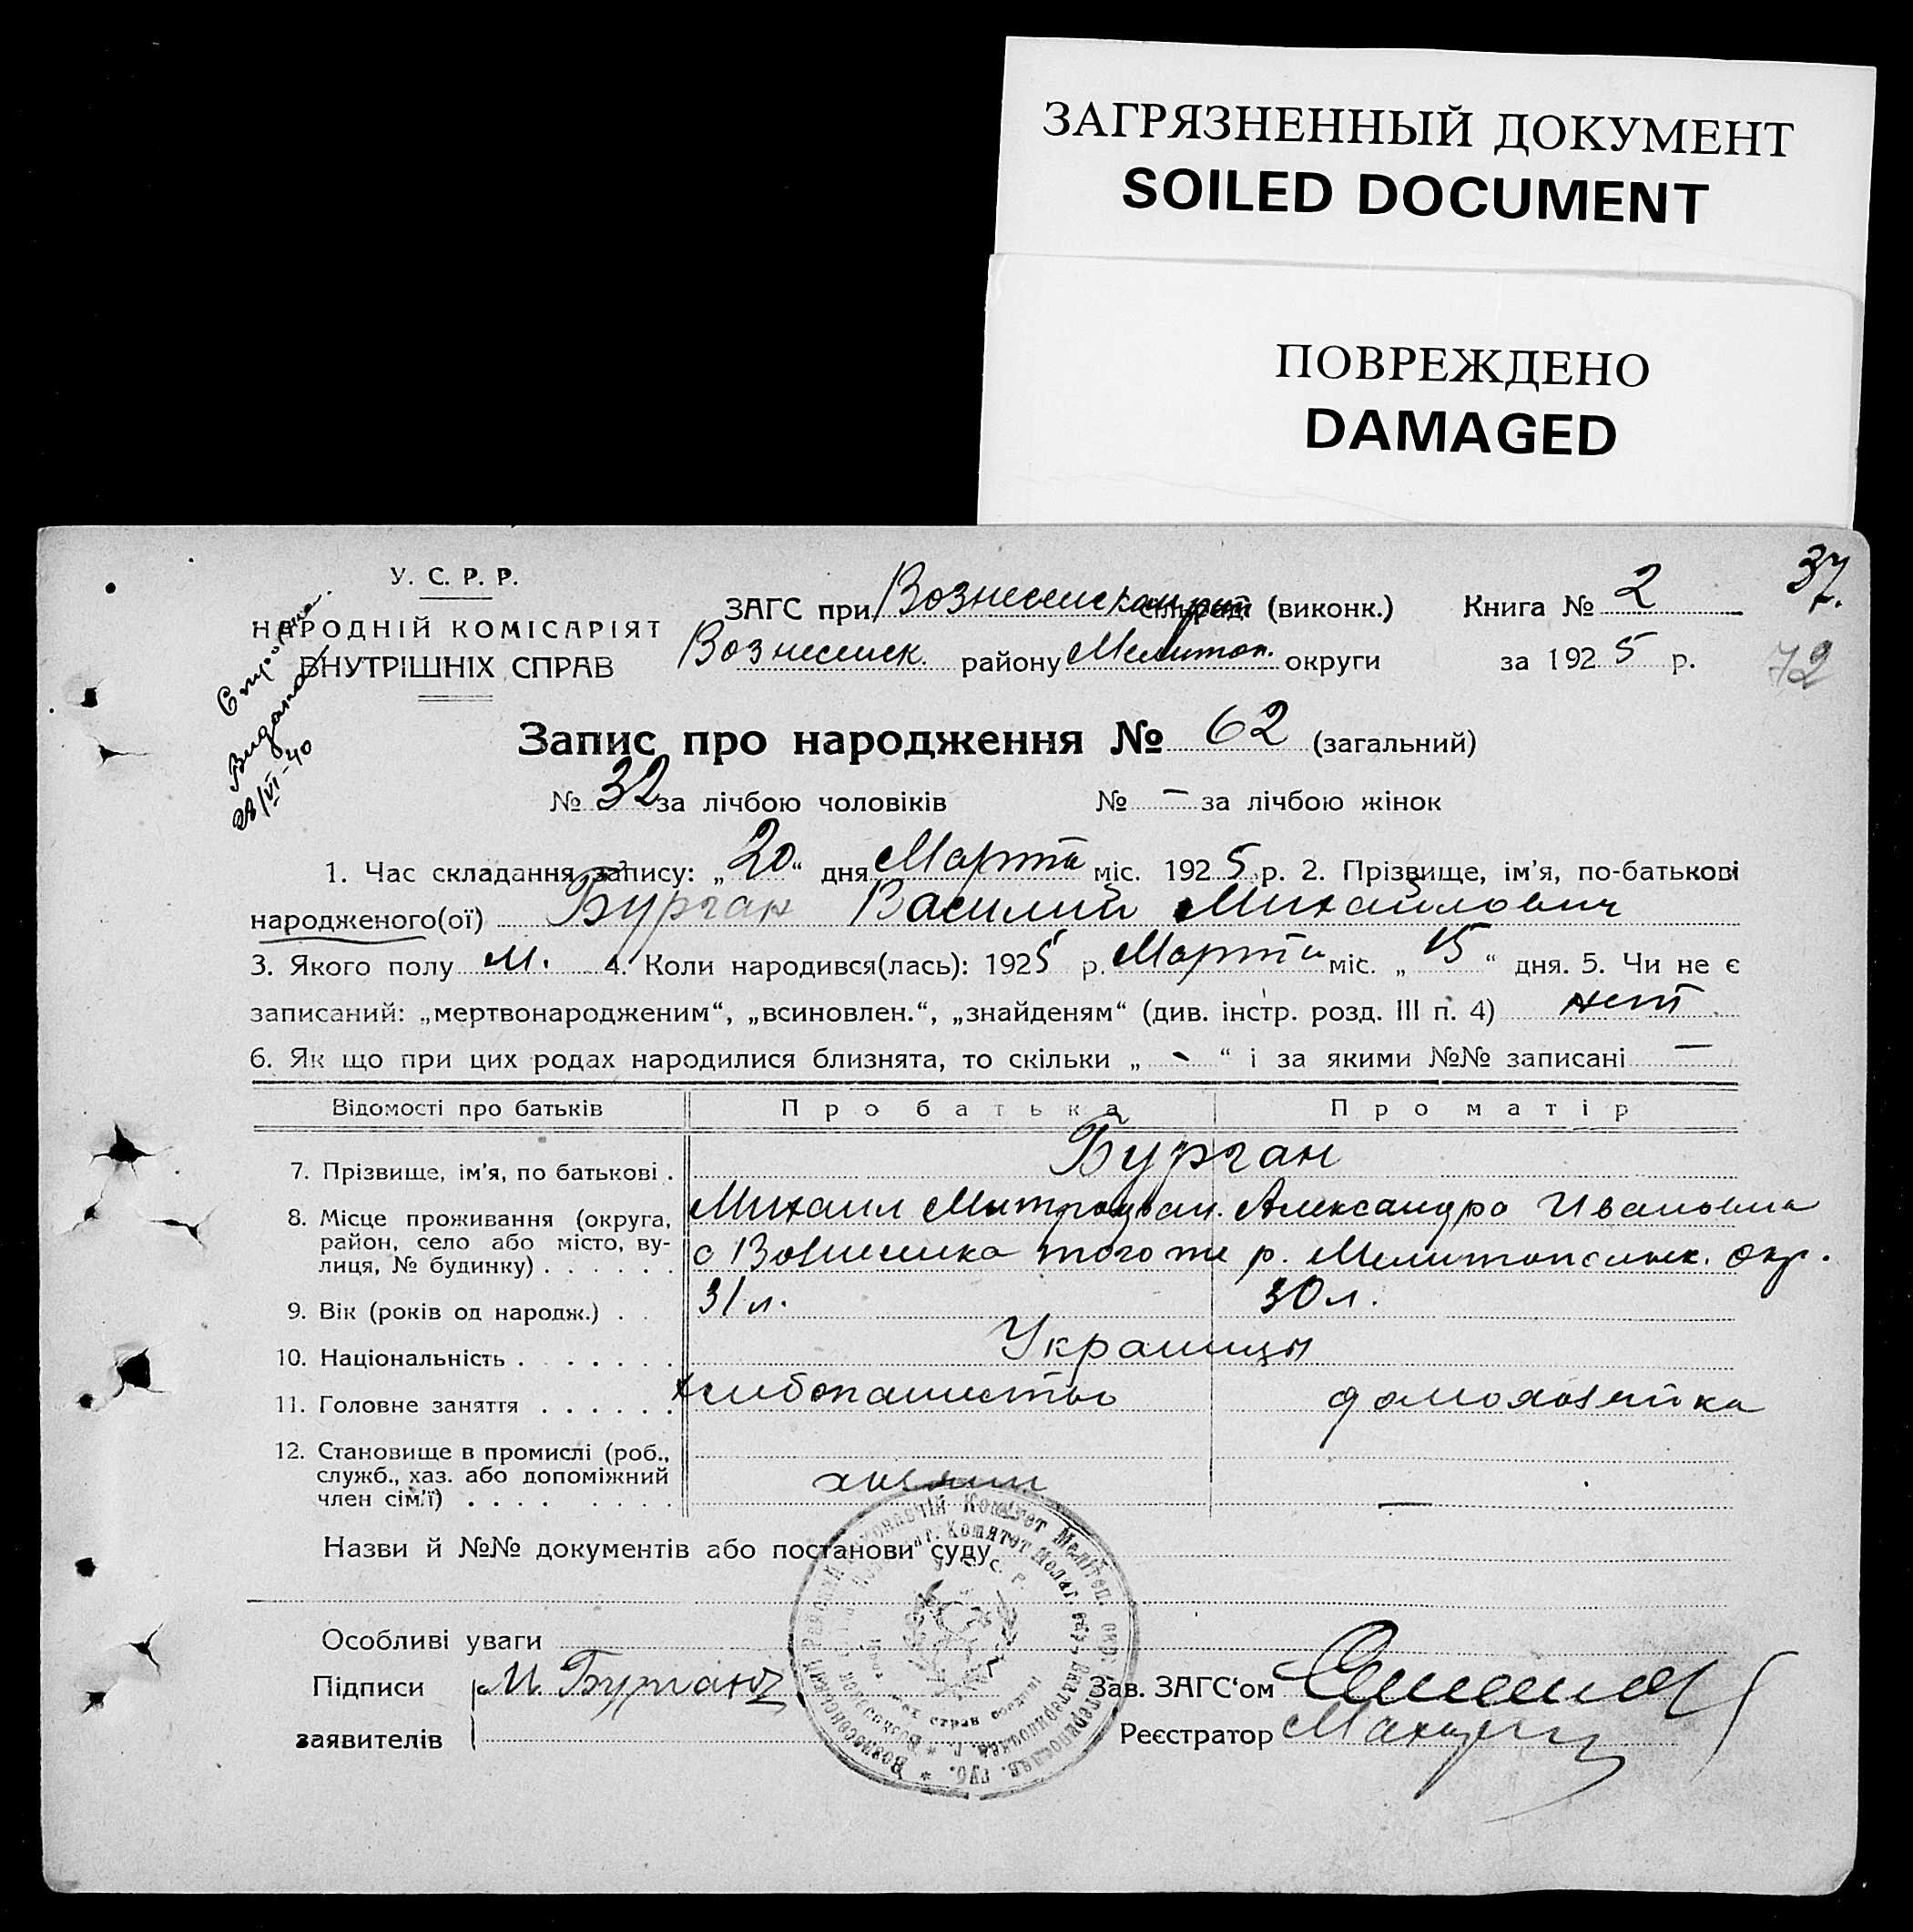 ЗАГРЯЗНЕННЫЙ ДОКУМЕНТ
SOILED DOCUMENT
ПОВРЕЖДЕНО
DAMAGED
37.
72
У. С. Р. Р.
НАРОДНІЙ КОМІСАРІЯТ
ВНУТРІШНІХ СПРАВ
Видана
28/VI-40
ЗАГС при (виконк.) Книга № 2
Вознесенск. району Мелитоп. округи за 1925 р.
Запис про народження № 62 (загальний)
№ 32 за лічбою чоловіків № – за лічбою жінок
1. Час складання запису: „20“ дня Марта міс. 1925 р. 2. Прізвище, ім’я, по-батькові
народженого(ої) Бурган Василий Михайлович
3. Якого полу М. 4. Коли народився(лась): 1925 р. Марта міс. „15“ дня. 5. Чи не є
записаний: „мертвонародженим“, „всиновлен.“, „знайденям“ (див. інстр. розд. III п. 4) нет
6. Як що при цих родах народилися близнята, то скільки „ - “ і за якими №№ записані —
Відомості про батьків Про батька Про матір
7. Прізвище, ім’я, по батькові . Бурган
Михаил Митрофан. Александра Ивановна
8. Місце проживання (округа, район, село або місто, вулиця, № будинку) . . . . . . с Вознесенка того же р. Мелитопольск. окр.
9. Вік (років од народж.) . . 31 л. 30 л.
10. Національність . . . . . . . Украинцы
11. Головне заняття . . . . . . хлебопашество домохозяйка
12. Становище в промислі (роб., служб., хаз. або допоміжний член сім’ї) . . . . хозяин —
Назви й №№ документів або постанови суду
Особливі уваги
Підписи М. Бурган Зав. ЗАГС‘ом
заявителів Реєстратор